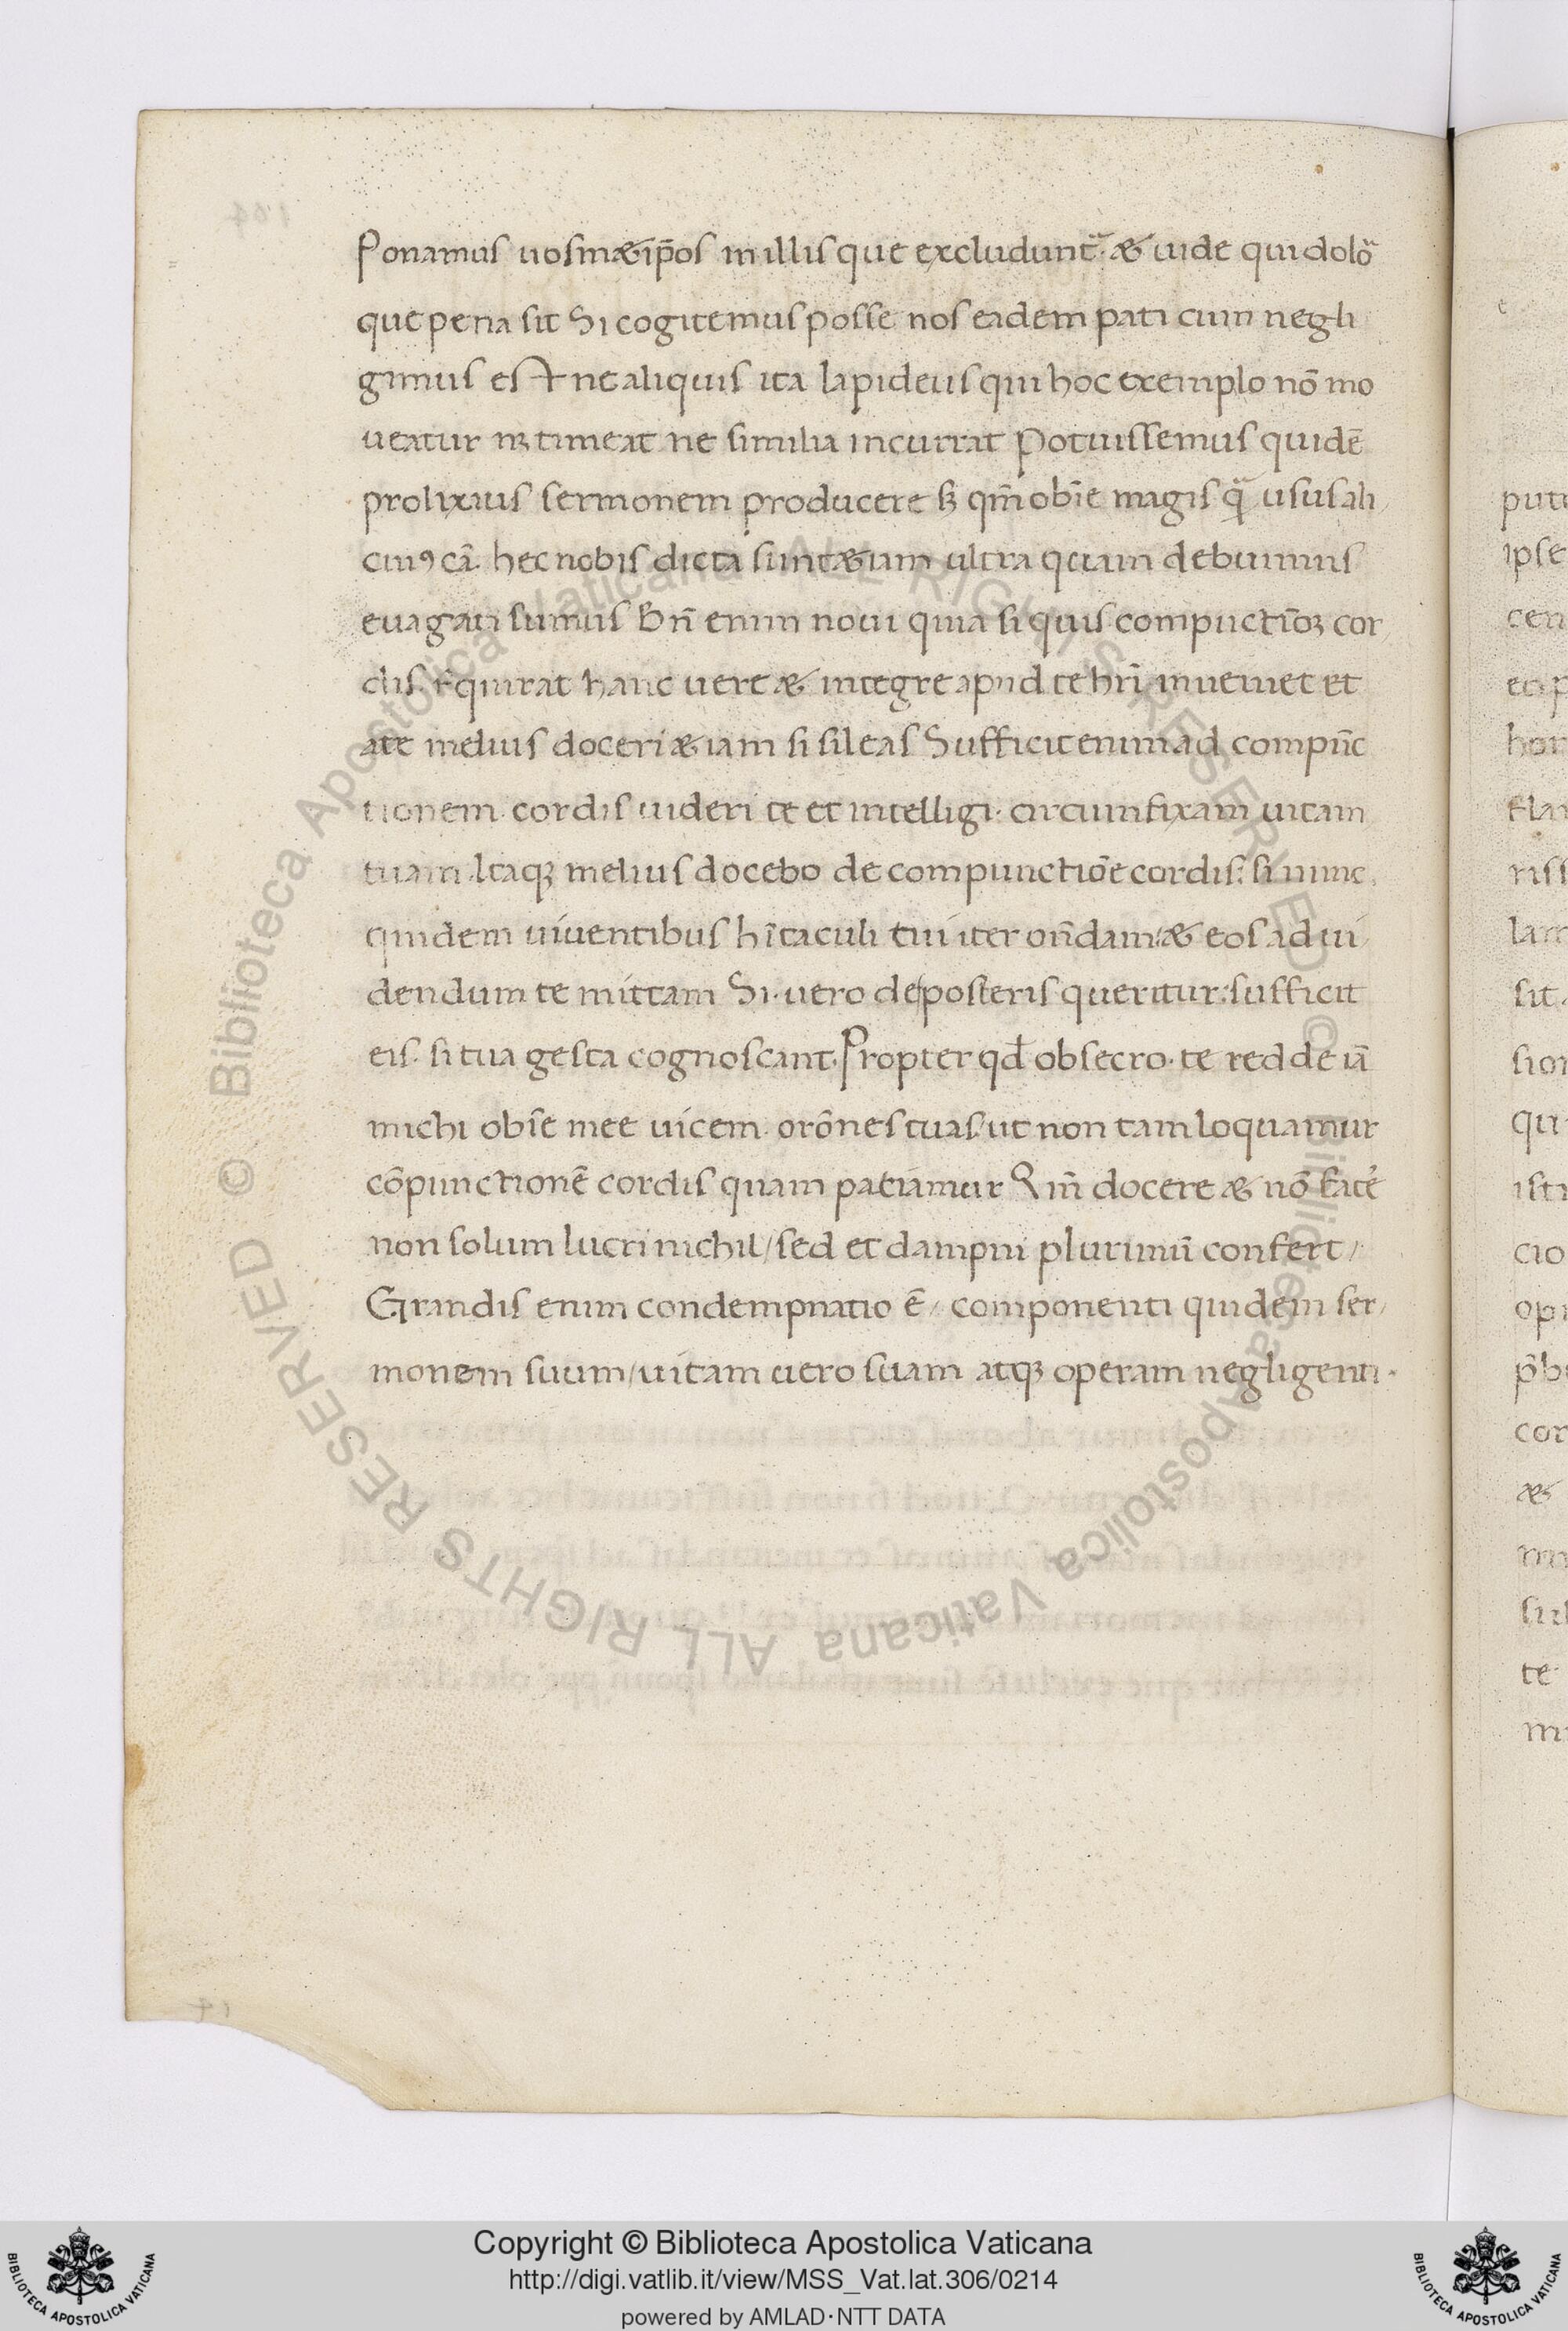 Ponamus uosmæip̄os in illis que excluduntᷓ· æ uide qui dolōᷓ
que pena sit Si cogitemus posse nos eadem pati cum negli
gimus est ne aliquis ita lapideus qui hoc exemplo nō mo
ueatur timeat ne similia incurrat Potuissemus quidē
prolixius sermonem producere sꝫ qm̄ obīe magis qᷓ usus ali/
cuiꝰ cā· hec nobis dicta sunt æ iam ultra quam debuimus
euagati sumus Bn̄ enim noui quia si quis compuctiōꝫ cor/
dis· rēquirat hanc uere æ integre apud te hr̄i inueniet et
ate melius doceri æ iam si sileas Sufficit enim ad compūc
tionem· cordis uideri te et intelligi· circumfixam uitam
tuam· Itaqꝫ melius docebo de compunctiōe cordis: si nunc
quidem uiuentibus hītaculi tui iter on̄dam: æ eos ad ui/
dendum te mittam Si· uero de posteris queritur: sufficit
eis· si tua gesta cognoscant· Propter qđ obsecro· te redde uā
michi obīe mee uicem· orōnes tuas: ut non tam loquamur
cōpunctionē cordis quam patiamur Qm̄ docere æ nō facē
non solum lucri nichil/ sed et dampni plurimū confert/
Grandis enim condempnatio ē/ componenti quidem ser/
monem suum/ uitam uero suam atqꝫ operam negligenti·
© Biblioteca Apostolica Vaticana ALL RIGHTS RESERVED
© Biblioteca Apostolica Vaticana ALL RIGHTS RESERVED
Copyright © Biblioteca Apostolica Vaticana
http://digi.vatlib.it/view/MSS_Vat.lat.306/0214
powered by AMLAD·NTT DATA
BIBLIOTECA APOSTOLICA VATICANA
BIBLIOTECA APOSTOLICA VATICANA